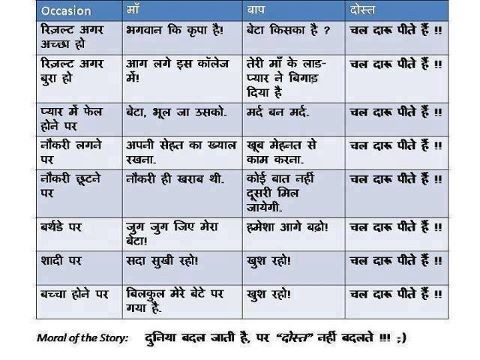 Occasion माँ बाप दोस्त
रिज़ल्ट अगर अच्छा हो भगवान कि कृपा है! बेटा किसका है ? चल दारू पीते हैं !!
रिज़ल्ट अगर बुरा हो आग लगे इस कॉलेज में! तेरी माँ के लाड-प्यार ने बिगाड़ दिया है चल दारू पीते हैं !!
प्यार में फेल होने पर बेटा, भूल जा उसको. मर्द बन मर्द. चल दारू पीते हैं !!
नौकरी लगने पर अपनी सेहत का ख्याल रखना. खूब मेहनत से काम करना. चल दारू पीते हैं !!
नौकरी छूटने पर नौकरी ही खराब थी. कोई बात नहीं दूसरी मिल जायेगी. चल दारू पीते हैं !!
बर्थडे पर जुग जुग जिए मेरा बेटा! हमेशा आगे बढ़ो! चल दारू पीते हैं !!
शादी पर सदा सुखी रहो! खुश रहो! चल दारू पीते हैं !!
बच्चा होने पर बिलकुल मेरे बेटे पर गया है. खुश रहो! चल दारू पीते हैं !!
Moral of the Story: दुनिया बदल जाती है, पर “दोस्त” नहीं बदलते !!! ;)